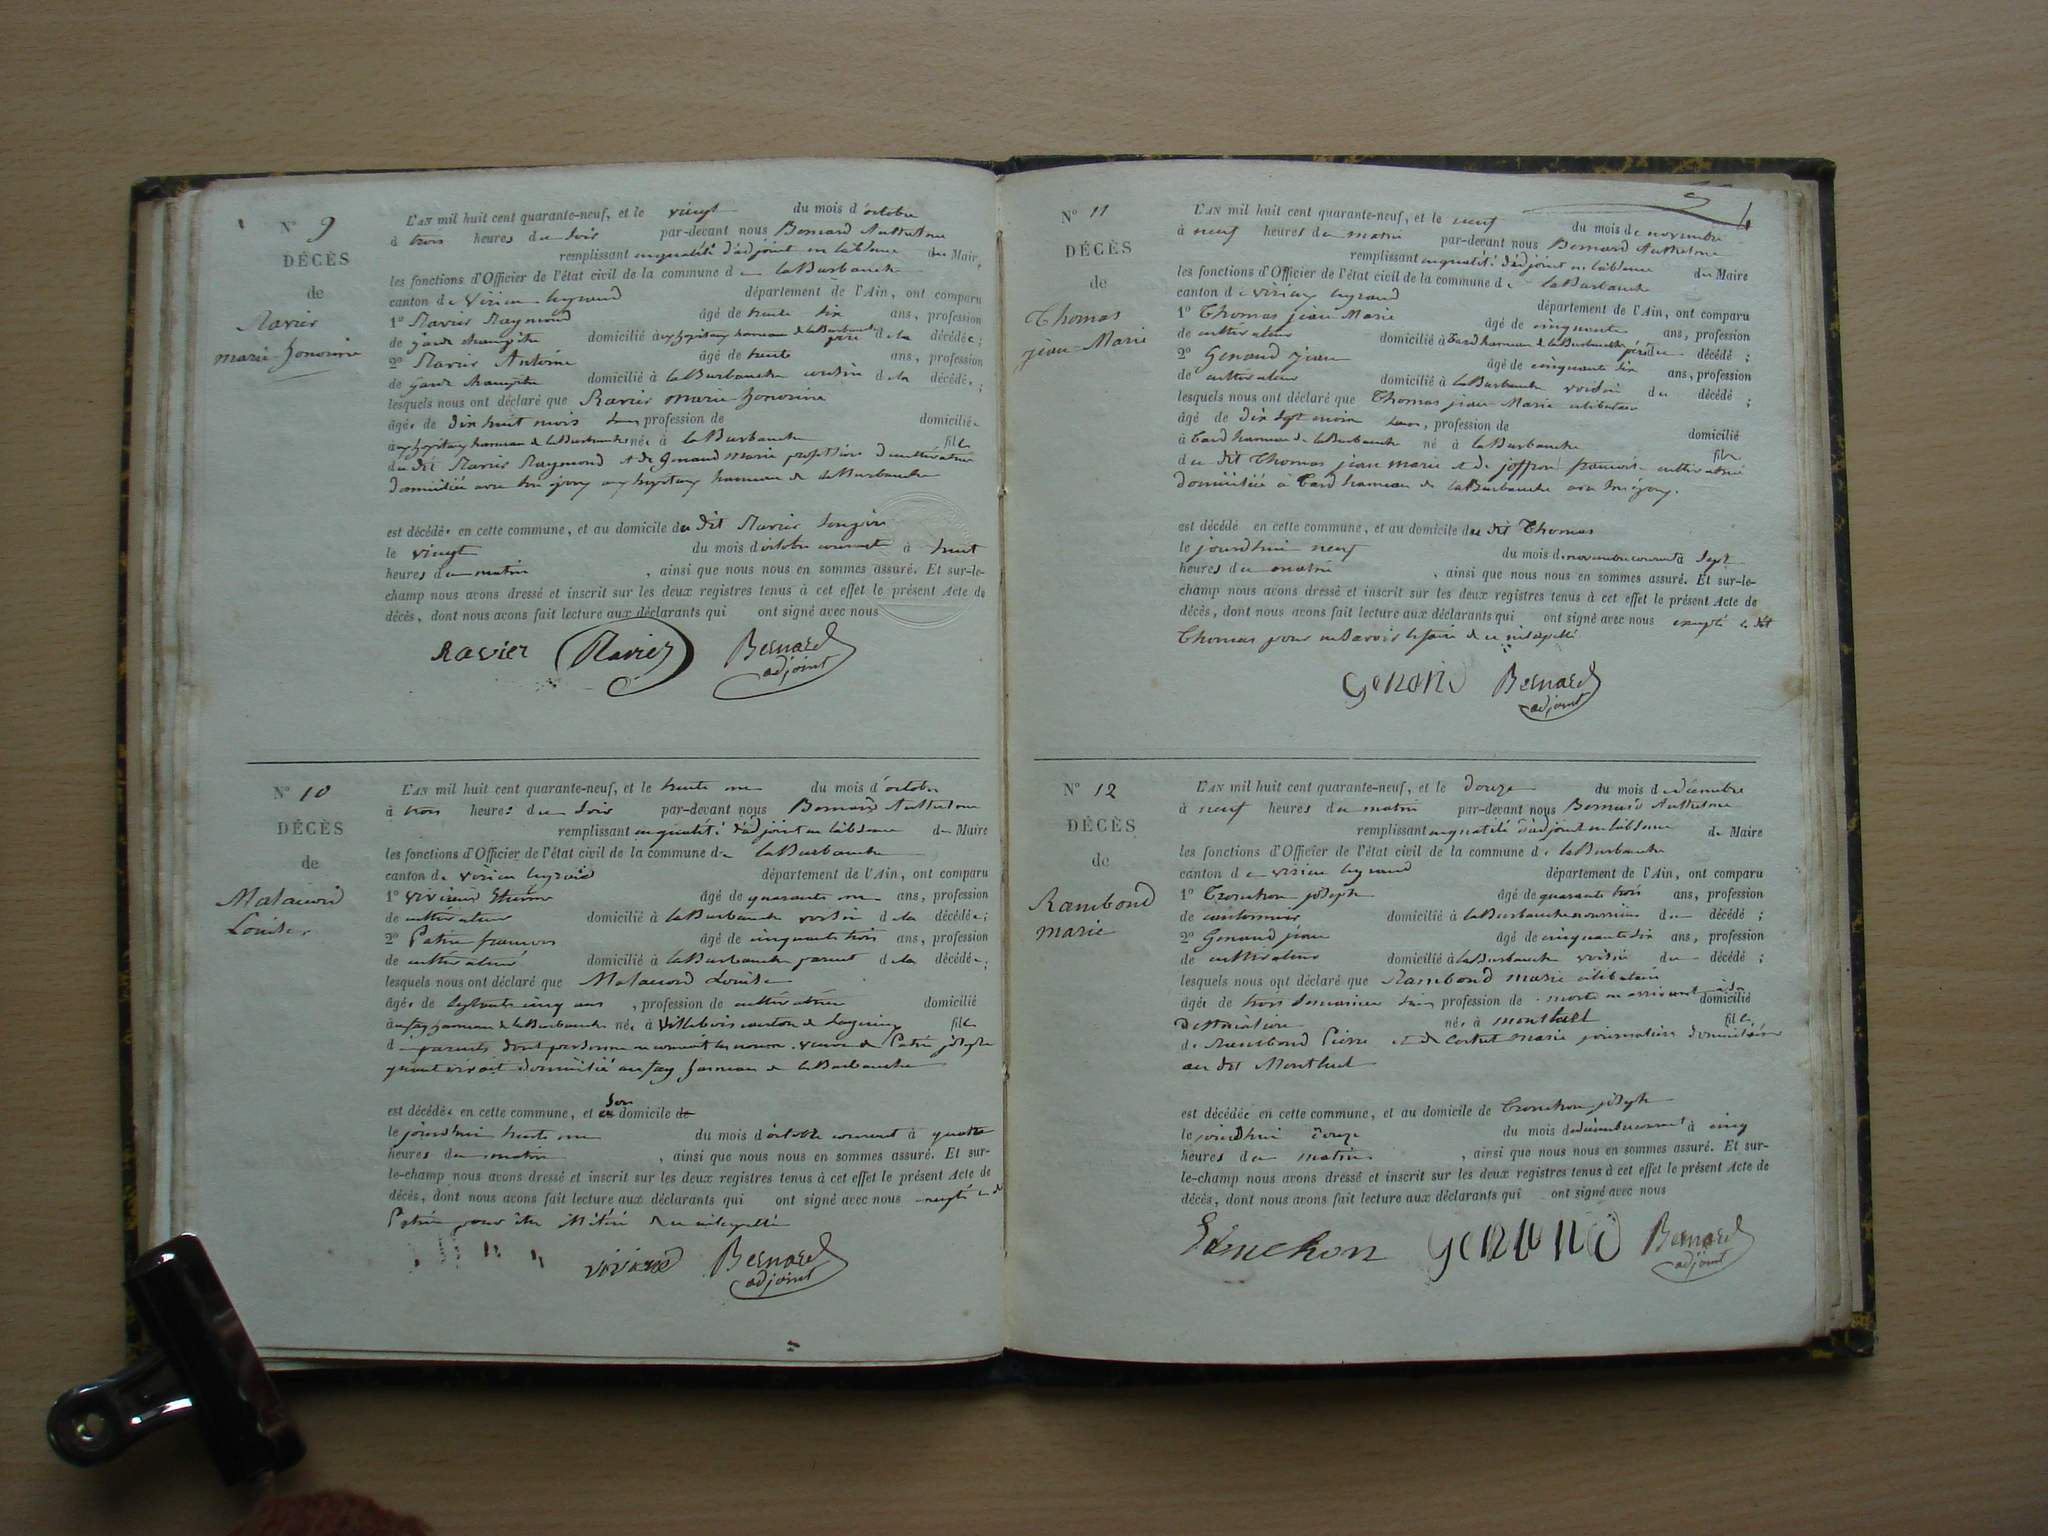 N° 9
DÉCÈS
de
Ravier
marie honorine
L'AN mil huit cent quarante-neuf, et le vingt du mois d'octobre
à trois heures du soir par-devant nous Bernard Anthelme
remplissant en qualité d'adjoint en l'absence du Maire
les fonctions d'Officier de l'état civil de la commune de laBurbanche
canton de virieu legrand département de l'Ain, ont comparu
1° Ravier Raymond âgé de trente six ans, profession
de garde champêtre domicilié à hameau de laBurbanche père de la décédée;
2° Ravier Antoine âgé de trente ans, profession
de garde champêtre domicilié à laBurbanche cousin de la décédée;
lesquels nous ont déclaré que Ravier marie honorine
âgée de dix huit mois sans profession de domiciliée
hameau de laBurbanche née à laBurbanche fille
du dit Ravier Raymond et de Genand marie profession de cultivatrice
domiciliée avec hameau de laBurbanche
est décédée en cette commune, et au domicile du dit Ravier
le vingt du mois d'octobre courant à huit
heures du matin, ainsi que nous nous en sommes assuré. Et sur-le-
champ nous avons dressé et inscrit sur les deux registres tenus à cet effet le présent Acte de
décès, dont nous avons fait lecture aux déclarants qui ont signé avec nous
Ravier Ravier Bernard
adjoint
N° 10
DÉCÈS
de
Louise
L'AN mil huit cent quarante-neuf, et le trente un du mois d'octobre
à trois heures du soir par-devant nous Bernard Anthelme
remplissant en qualité d'adjoint en l'absence du Maire
les fonctions d'Officier de l'état civil de la commune de laBurbanche
canton de virieu legrand département de l'Ain, ont comparu
1° vivian âgé de quarante un ans, profession
de cultivateur domicilié à laBurbanche voisin de la décédée;
2° françois âgé de cinquante trois ans, profession
de cultivateur domicilié à laBurbanche parent de la décédée;
lesquels nous ont déclaré que Louise
âgée de septante cinq ans, profession de cultivatrice domicilié
au fay hameau de laBurbanche née à villebois canton de fille
de parents dont personne ne connait les noms. veuve de joseph
quand vivait domicilié au fay hameau de laBurbanche
est décédée en cette commune, et son domicile
le jourdhui trente un du mois d'octobre courant à quatre
heures du matin, ainsi que nous nous en sommes assuré. Et sur-
le-champ nous avons dressé et inscrit sur les deux registres tenus à cet effet le présent Acte de
décès, dont nous avons fait lecture aux déclarants qui ont signé avec nous excepté
pour être illitéré de ce interpellé
vivian Bernard
adjoint
N° 11
DÉCÈS
de
Thomas
jean-Marie
L'AN mil huit cent quarante-neuf, et le neuf du mois de novembre
à neuf heures du matin par-devant nous Bernard Anthelme
remplissant en qualité d'adjoint en l'absence du Maire
les fonctions d'Officier de l'état civil de la commune de laBurbanche
canton de virieu legrand département de l'Ain, ont comparu
1° Thomas jean Marie âgé de cinquante ans, profession
de cultivateur domicilié à Tard hameau de laBurbanche père du décédé;
2° Genand jean âgé de cinquante six ans, profession
de cultivateur domicilié à laBurbanche voisin du décédé;
lesquels nous ont déclaré que Thomas jean Marie célibataire
âgé de dix sept mois sans, profession de domicilié
à Tard hameau de laBurbanche né à laBurbanche fils
du dit Thomas jean marie et de joffron cultivatrice
domiciliée à Tard hameau de laBurbanche
est décédé en cette commune, et au domicile du dit Thomas
le jourdhui neuf du mois de novembre courant à sept
heures du matin, ainsi que nous nous en sommes assuré. Et sur-le-
champ nous avons dressé et inscrit sur les deux registres tenus à cet effet le présent Acte de
décès, dont nous avons fait lecture aux déclarants qui ont signé avec nous excepté le dit
Thomas pour ne savoir le faire de ce interpellé
Genand Bernard
adjoint
N° 12
DÉCÈS
de
Rambond
marie
L'AN mil huit cent quarante-neuf, et le douze du mois de décembre
à neuf heures du matin par-devant nous Bernard Anthelme
remplissant en qualité d'adjoint en l'absence du Maire
les fonctions d'Officier de l'état civil de la commune de laBurbanche
canton de virieu legrand département de l'Ain, ont comparu
1° Tronchon joseph âgé de quarante trois ans, profession
de cantonnier domicilié à laBurbanche du décédé;
2° Genand jean âgé de cinquante six ans, profession
de cultivateur domicilié à laBurbanche voisin du décédé;
lesquels nous ont déclaré que Rambond marie célibataire
âgée de trois semaines sans profession de morte en arrivant à sa domicilié
destination née à montluel fille
de Rambond Pierre et de marie domiciliés
au dit Montluel
est décédée en cette commune, et au domicile de Tronchon joseph
le jourdhui douze du mois de décembre courant à cinq
heures du matin, ainsi que nous nous en sommes assuré. Et sur-
le-champ nous avons dressé et inscrit sur les deux registres tenus à cet effet le présent Acte de
décès, dont nous avons fait lecture aux déclarants qui ont signé avec nous
Tronchon Genand Bernard
adjoint